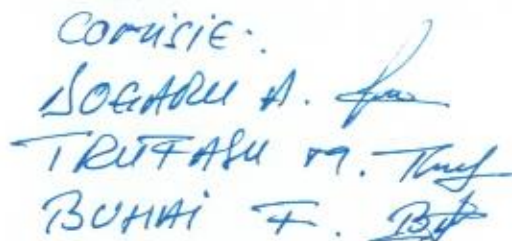 COMISIE:
BOGARU A.
TRUFAȘU M.
BUHAI F.